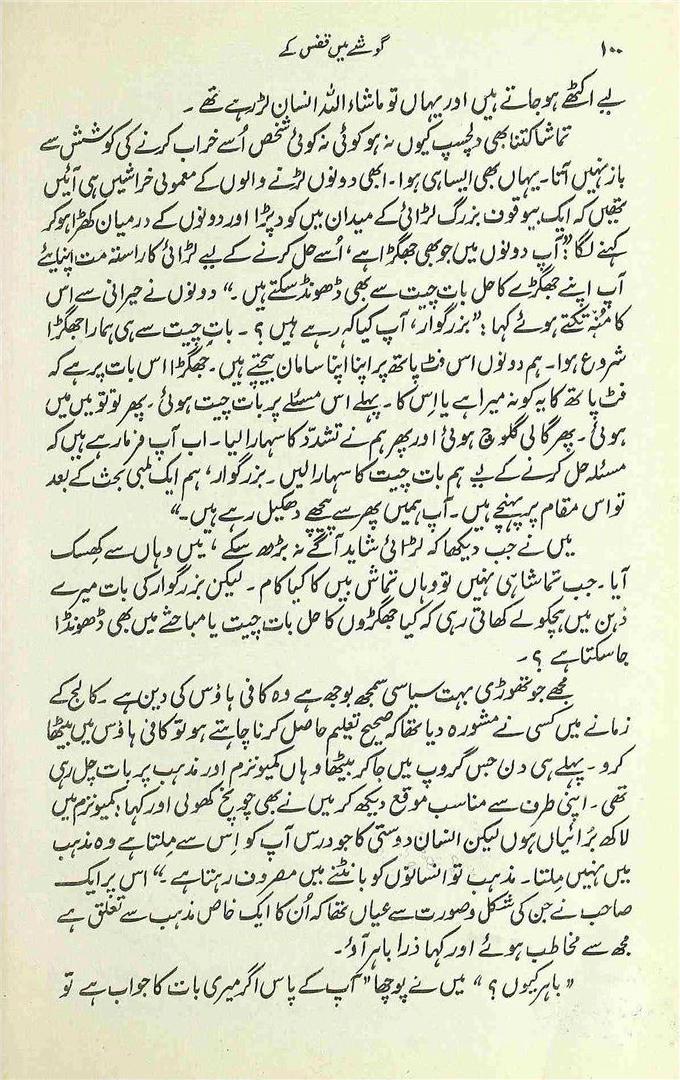 ۱۰۰
گوشے میں قفس کے
لیے اکٹھے ہوجاتے ہیں اور یہاں تو ماشاء اللہ انسان لڑ رہے تھے ۔
تماشا کتنا بھی دلچسپ کیوں نہ ہو کوئی نہ کوئی شخص اُسے خراب کرنے کی کوشش سے
باز نہیں آتا۔ یہاں بھی ایسا ہی ہوا۔ ابھی دونوں لڑنے والوں کے معمولی خراشیں ہی آئیں
تھیں کہ ایک بیوقوف بزرگ لڑائی کے میدان میں کود پڑا اور دونوں کے درمیان کھڑا ہوکر
کہنے لگا: ”آپ دونوں میں جو بھی جھگڑا ہے، اُسے حل کرنے کے لیے لڑائی کا راستہ مت اپنایئے
آپ اپنے جھگڑے کا حل بات چیت سے بھی ڈھونڈ سکتے ہیں ۔“ دونوں نے حیرانی سے اس
کا مُنہ تکتے ہوئے کہا: ”بزرگوار، آپ کیا کہہ رہے ہیں ؟ ۔ بات چیت سے ہی ہمارا جھگڑا
شروع ہوا۔ ہم دونوں اس فٹ پاتھ پر اپنا اپنا سامان بیچتے ہیں۔ جھگڑا اس بات پر ہے کہ
فٹ پاتھ کا یہ کونہ میرا ہے یا اِس کا ۔ پہلے اس مسئلے پر بات چیت ہوئی ۔ پھر تو تو میں میں
ہوئی ۔ پھر گالی گلوچ ہوئی اور پھر ہم نے تشدّد کا سہارا لیا ۔ اب آپ فرما رہے ہیں کہ
مسئلہ حل کرنے کے لیے ہم بات چیت کا سہارا لیں ۔ بزرگوار، ہم ایک لمبی بحث کے بعد
تو اس مقام پر پہنچے ہیں ۔ آپ ہمیں پھر سے پیچھے دھکیل رہے ہیں ۔“
میں نے جب دیکھا کہ لڑائی شاید آگے نہ بڑھ سکے ، میں وہاں سے کھِسک
آیا ۔ جب تماشا ہی نہیں تو وہاں تماش بیں کا کیا کام ۔ لیکن بزرگوار کی بات میرے
ذہن میں ہچکولے کھاتی رہی کہ کیا جھگڑوں کا حل بات چیت یا مباحثے میں بھی ڈھونڈا
جا سکتا ہے ؟ ۔
مجھے جو تھوڑی بہت سیاسی سمجھ بوجھ ہے وہ کافی ہاؤس کی دین ہے ۔ کالج کے
زمانے میں کسی نے مشورہ دیا تھا کہ صحیح تعلیم حاصل کرنا چاہتے ہو تو کافی ہاؤس میں بیٹھا
کرو ۔ پہلے ہی دن جس گروپ میں جاکر بیٹھا وہاں کمیونزم اور مذہب پر بات چل رہی
تھی ۔ اپنی طرف سے مناسب موقع دیکھ کر میں نے بھی چونچ کھولی اور کہا: ”کمیونزم میں
لاکھ بُرائیاں ہوں لیکن انسان دوستی کا جو درس آپ کو اِس سے ملتا ہے وہ مذہب
میں نہیں ملتا ۔ مذہب تو انسانوں کو بانٹنے میں مصروف رہتا ہے ۔“ اس پر ایک
صاحب نے جن کی شکل و صورت سے عیاں تھا کہ اُن کا ایک خاص مذہب سے تعلق ہے
مجھ سے مخاطب ہوئے اور کہا ذرا باہر آؤ ۔
”باہر کیوں ؟“ میں نے پوچھا ”آپ کے پاس اگر میری بات کا جواب ہے تو